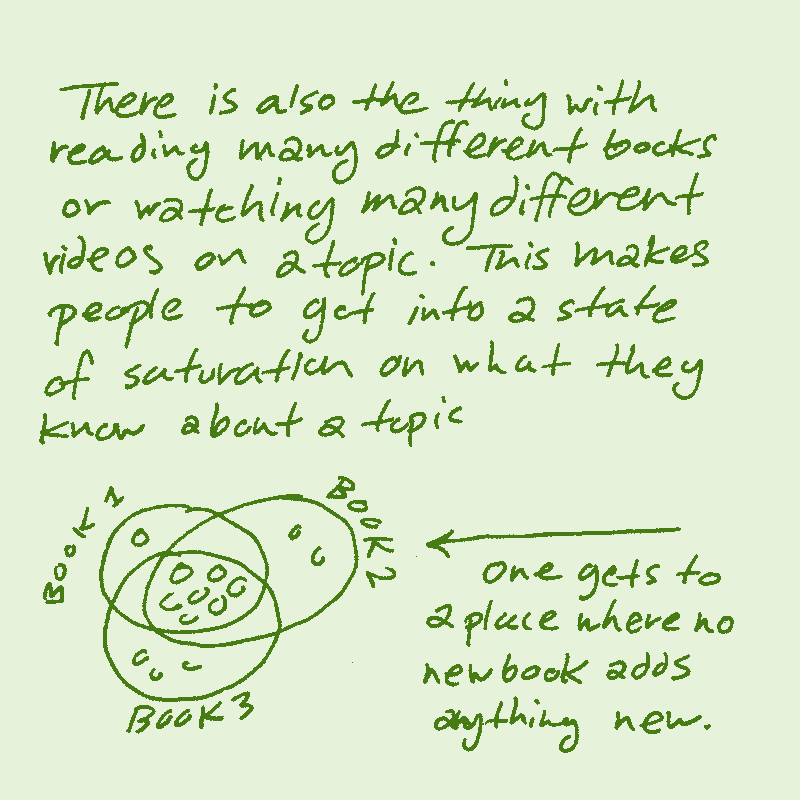 There is also the thing with
reading many different books
or watching many different
videos on a topic. This makes
people to get into a state
of saturation on what they
know about a topic
Book 1
Book 2
Book 3
One gets to
a place where no
new book adds
anything new.